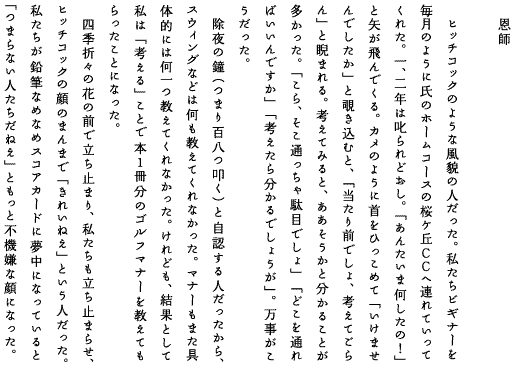 恩師
ヒッチコックのような風貌の人だった。私たちビギナーを
毎月のように氏のホームコースの桜ヶ丘CCへ連れていって
くれた。一、二年は叱られどおし。「あんたいま何したの！」
と矢が飛んでくる。カメのように首をひっこめて「いけませ
んでしたか」と覗き込むと、「当たり前でしょ、考えてごら
ん」と睨まれる。考えてみると、ああそうかと分かることが
多かった。「こら、そこ通っちゃ駄目でしょ」「どこを通れ
ばいいんですか」「考えたら分かるでしょうが」。万事がこ
うだった。
除夜の鐘（つまり百八つ叩く）と自認する人だったから、
スウィングなどは何も教えてくれなかった。マナーもまた具
体的には何一つ教えてくれなかった。けれども、結果として
私は「考える」ことで本1冊分のゴルフマナーを教えても
らったことになった。
四季折々の花の前で立ち止まり、私たちも立ち止まらせ、
ヒッチコックの顔のまんまで「きれいねぇ」という人だった。
私たちが鉛筆なめなめスコアカードに夢中になっていると
「つまらない人たちだねぇ」ともっと不機嫌な顔になった。